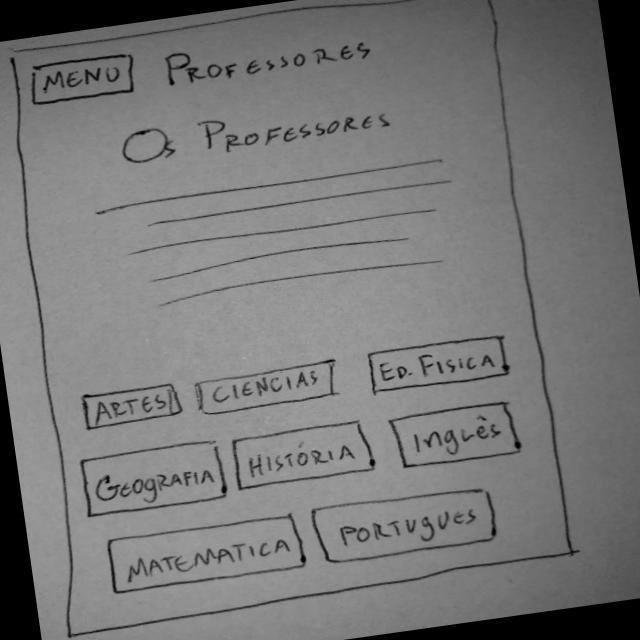 MENU PROFESSORES
Os PROFESSORES
ARTES CIENCIAS ED. FISICA
GEOGRAFIA HISTÓRIA Inglês
MATEMATICA PORTUGUES